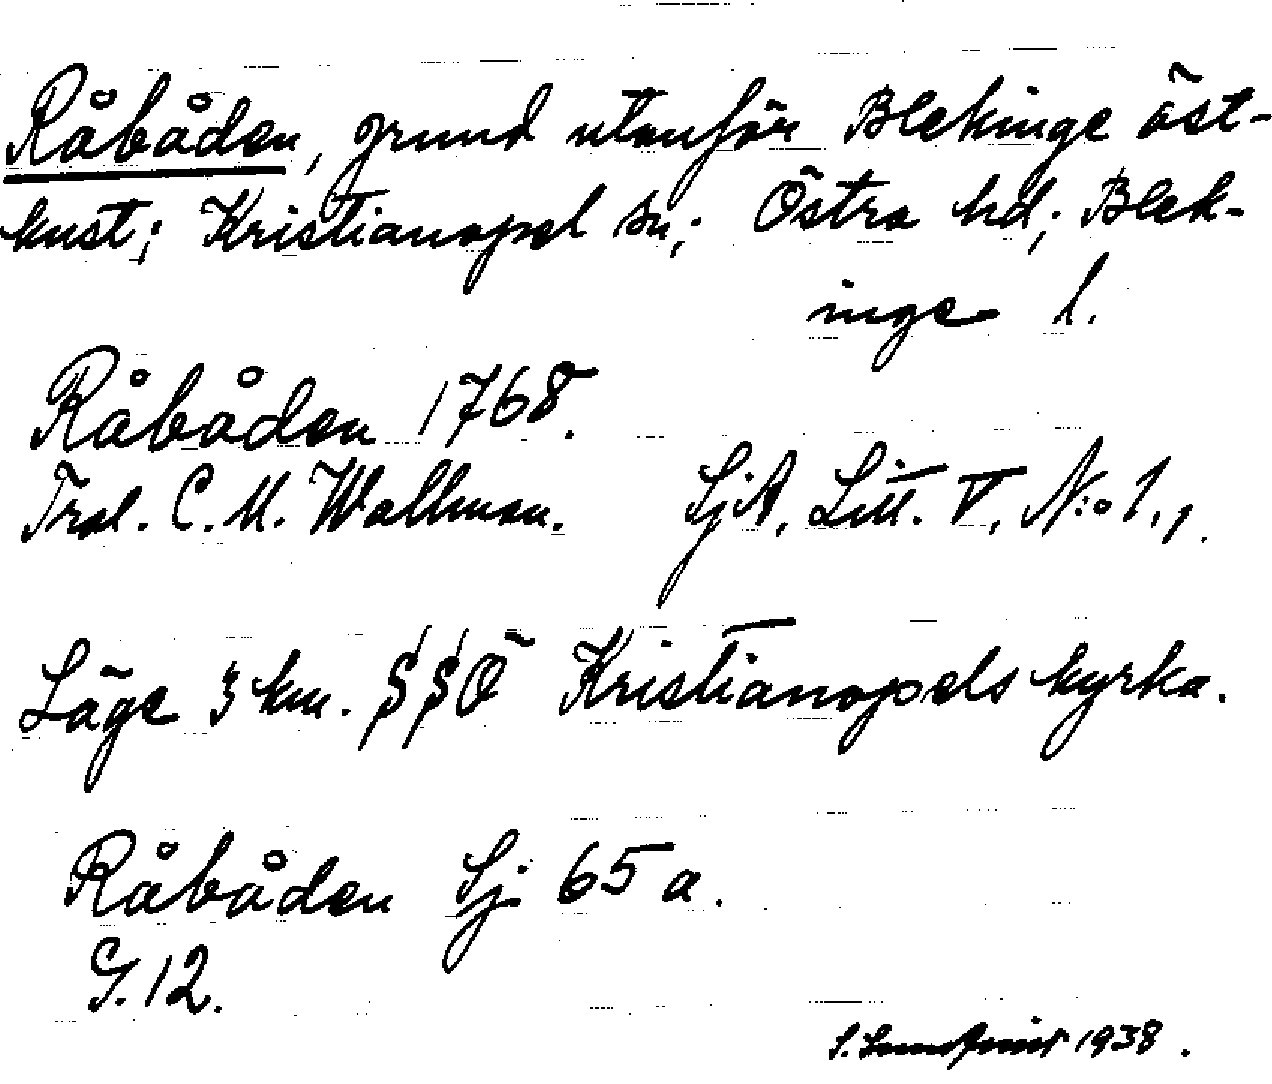 Råbåden, grund utanför Blekinge öst-
kust; Kristianopel sn; Östra hd; Blek-
inge l.
Råbåden 1768.
Trol. C. M. Wallman. SjA, Litt. V, N:o 1, 1.
Läge 3 km. SSÖ Kristianopels kyrka.
Råbåden Sj 65 a.
G. 12.
1938.